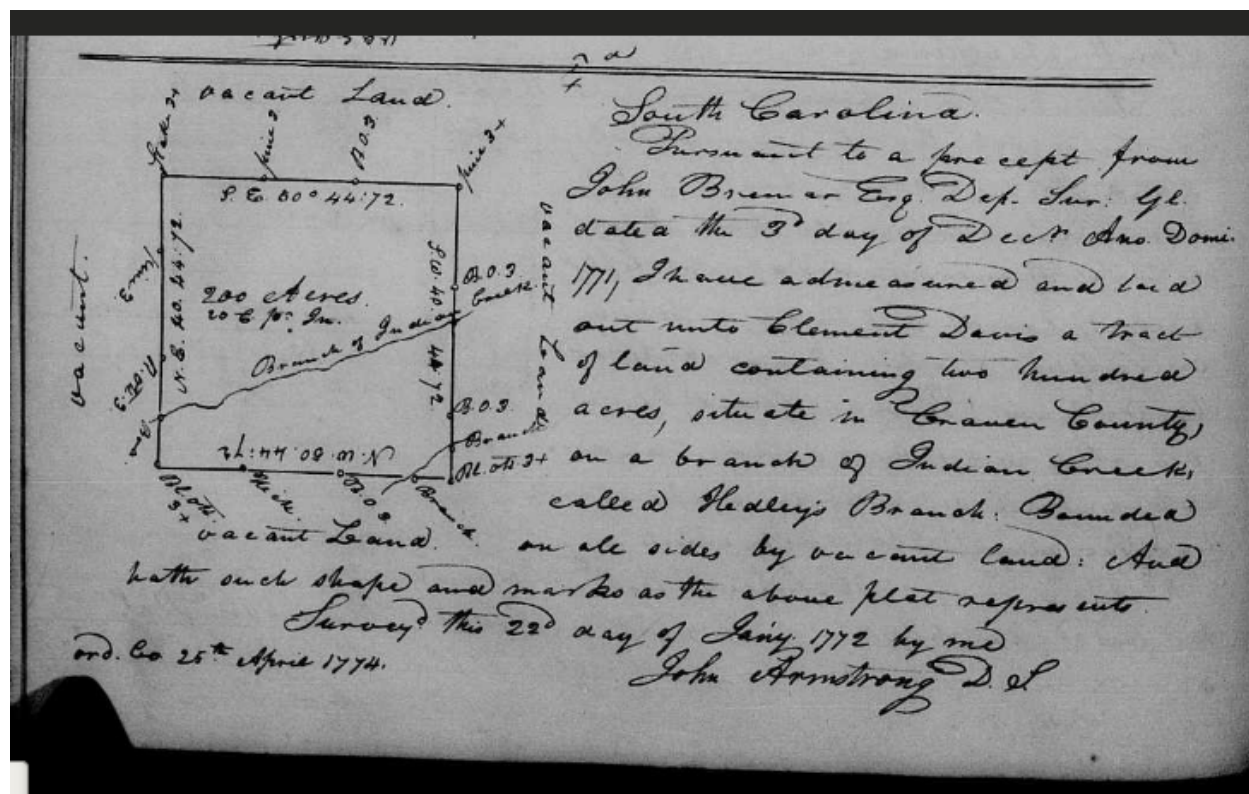 vacant Land.
Stake 3+
pine 3
B.O.3
pine 3+
S.E. 80° 44:72.
vacant.
pine 3
N.E. 40. 44.72.
200 Acres.
20 C pr. In.
Branch of Indian Creek
S.W. 40. 44.72.
B.O.3
vacant Land
B.O.3.
Branch
Bl. Oak 3+
N.W. 80. 44:72
Bl. Oak 3+
Hick.
B.O 3
Branch
vacant Land.
South Carolina.
Pursuant to a precept from
John Bremar Esq. Dep. Sur. Gl.
dated the 3d day of Decr. Ano. Domi.
1771, I have admeasured and laid
out unto Clement Davis a tract
of land containing two hundred
acres, situate in Craven County,
on a branch of Indian Creek,
called Hedley's Branch: Bounded
on all sides by vacant land: And
hath such shape and marks as the above plat represents.
Survey'd this 22d day of Jan'y. 1772 by me
ord. Co 25th April 1774.
John Armstrong D. S.